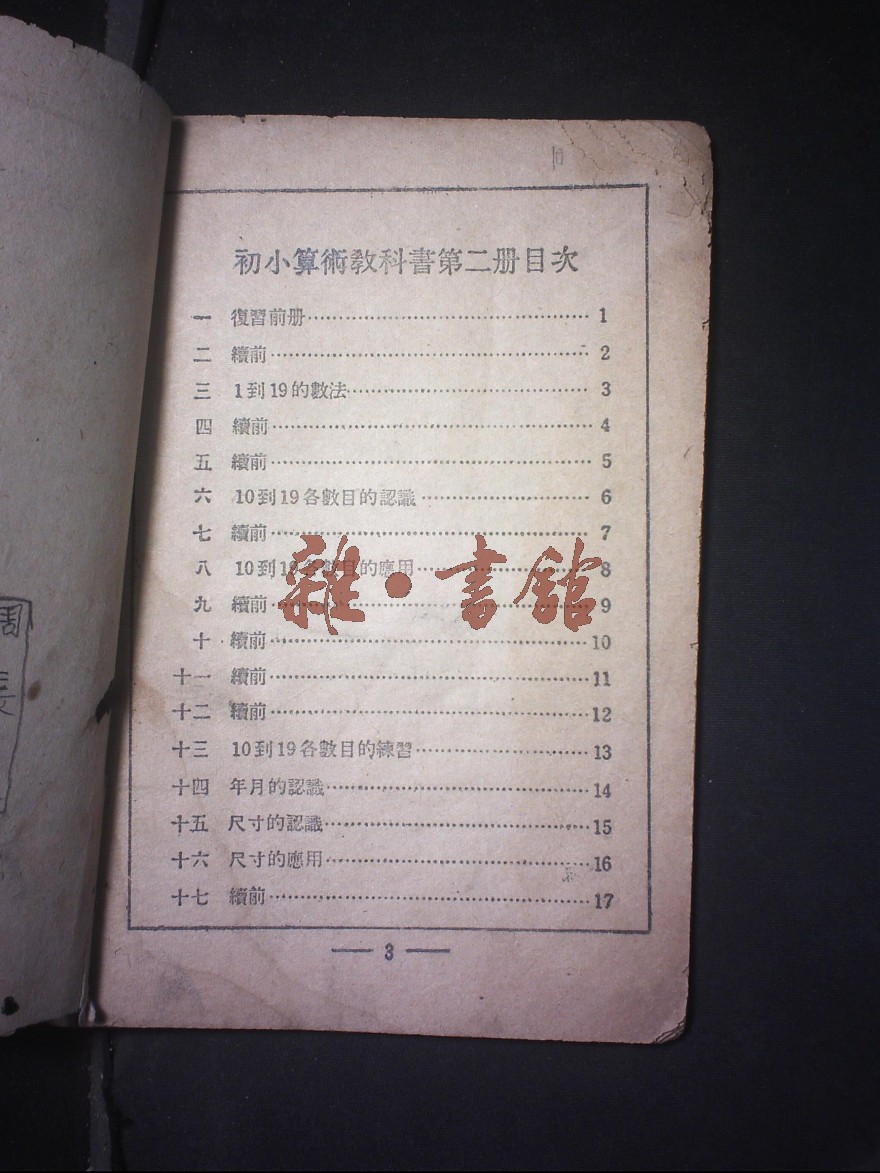 初小算術教科書第二册目次
一 復習前册 1
二 續前 2
三 1到19的數法 3
四 續前 4
五 續前 5
六 10到19各數目的認識 6
七 續前 7
八 10到19各數目的應用 8
九 續前 9
十 續前 10
十一 續前 11
十二 續前 12
十三 10到19各數目的練習 13
十四 年月的認識 14
十五 尺寸的認識 15
十六 尺寸的應用 16
十七 續前 17
— 3 —
雜·書館